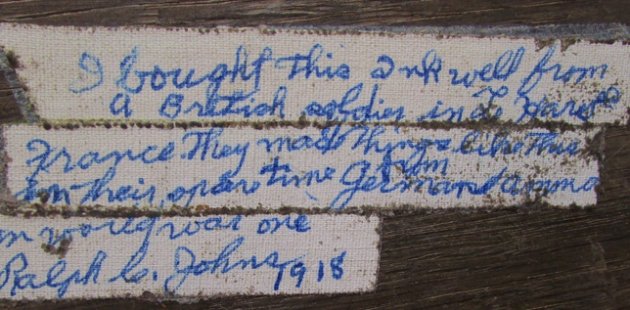 I bought this inkwell from
a British soldier in Le Havre
France They made things like this
in their spare time from
German ammo
was one
Ralph C. Johns 1918